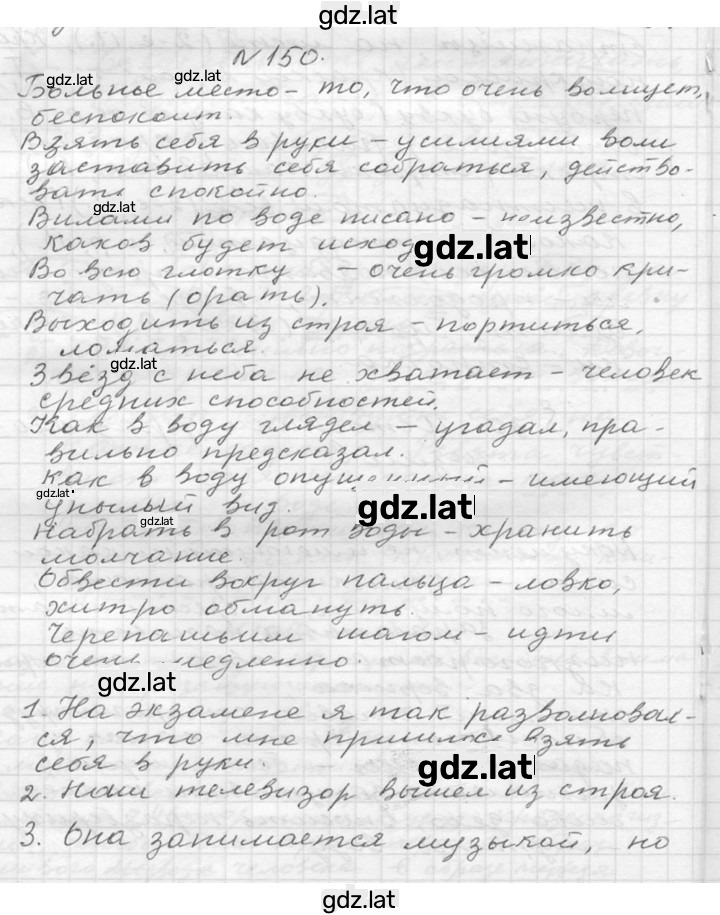 gdz.lat
N 150.
gdz.lat gdz.lat
Больные место - то, что очень волнует,
беспокоит.
Взять себя в руки - усилиями воли
заставить себя собраться, действо-
вать спокойно.
gdz.lat
Вилами по воде писано - неизвестно,
каков будет исход
gdz.lat
Во всю глотку - очень громко кри-
чать (орать).
Выходить из строя - портиться,
ломаться.
gdz.lat
Звёзд с неба не хватает - человек
средних способностей.
Как в воду глядел - угадал, пра-
вильно предсказал.
как в воду опущенный - имеющий
gdz.lat
унылый вид.
gdz.lat
gdz.lat
Набрать в рот воды - хранить
молчание.
Обвести вокруг пальца - ловко,
хитро обмануть.
Черепашьим шагом - идти
очень медленно.
gdz.lat
1. На экзамене я так разволновал-
ся, что мне пришлось взять
себя в руки.
gdz.lat
2. Наш телевизор вышел из строя.
3. Она занимается музыкой, но
gdz.lat